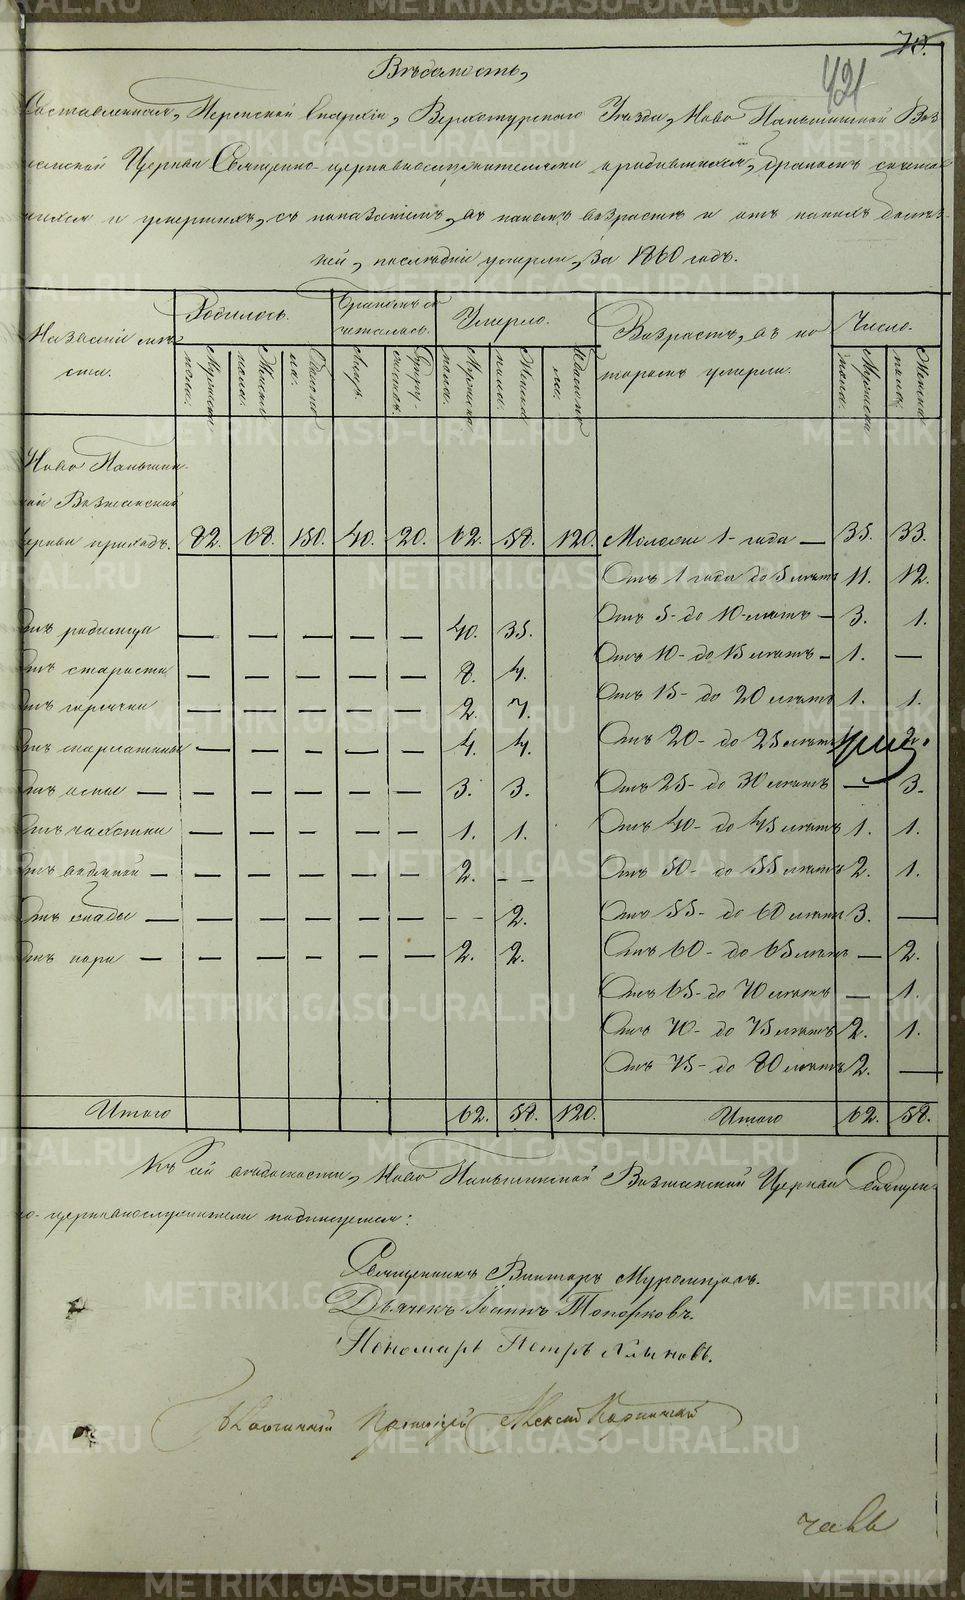 70.
421
Вѣдомость,
Составленная, Пермской Епархіи, Верхотурскаго Уѣзда, Ново Паньшинской Воз-
несенской Церкви Священно-церковнослужителями о родившихся, бракомъ сочетав-
шихся и умершихъ, съ показаніемъ, въ какомъ возрастѣ и отъ какихъ болѣз-
ней, послѣдніе умерли, за 1860 годъ.
Названіе мѣ-
ста.
Родилось.
Бракомъ со-
читалось.
Умерло.
Возрастъ, въ ко-
торомъ умерли.
Число.
Мужеска пола.
Женска пола.
Обоего
Лицъ.
Супру-
жествъ.
Мужеска пола.
Женска пола.
Обоего
Мужеска пола.
Женска пола.
Ново Паньшин-
ской Вознесенской
Церкви приходъ. 82. 68. 150. 40. 20. 62. 58. 120. Моложе 1- года — 35. 33.
Отъ 1 года до 5 лѣтъ 11. 12.
Отъ родимца — — — — — 40. 35. Отъ 5- до 10- лѣтъ — 3. 1.
Отъ старости — — — — — 8. 4. Отъ 10- до 15 лѣтъ — 1. —
Отъ горячки — — — — — 2. 7. Отъ 15- до 20 лѣтъ 1. 1.
Отъ скарлатины — — — — — 4. 4. Отъ 20- до 25 лѣтъ 2.
Отъ оспы — — — — — 3. 3. Отъ 25- до 30 лѣтъ — 3.
Отъ чахотки — — — — — 1. 1. Отъ 40- до 45 лѣтъ 1. 1.
Отъ водяной — — — — — 2. — Отъ 50- до 55 лѣтъ 2. 1.
Отъ — — — — — — 2. Отъ 55- до 60 лѣтъ 3. —
Отъ кори — — — — — 2. 2. Отъ 60- до 65 лѣтъ — 2.
Отъ 65- до 70 лѣтъ — 1.
Отъ 70- до 75 лѣтъ 2. 1.
Отъ 75- до 80 лѣтъ 2. —
Итого 62. 58. 120. Итого 62. 58.
Къ сей вѣдомости, Ново Паньшинской Вознесенской Церкви Священ-
но-церковнослужители подписуемся:
Священникъ Викторъ
Дьячекъ Іоаннъ Топорковъ.
Пономарь Петръ Хлыновъ.
Благочинный Алексій
METRIKI.GASO-URAL.RU